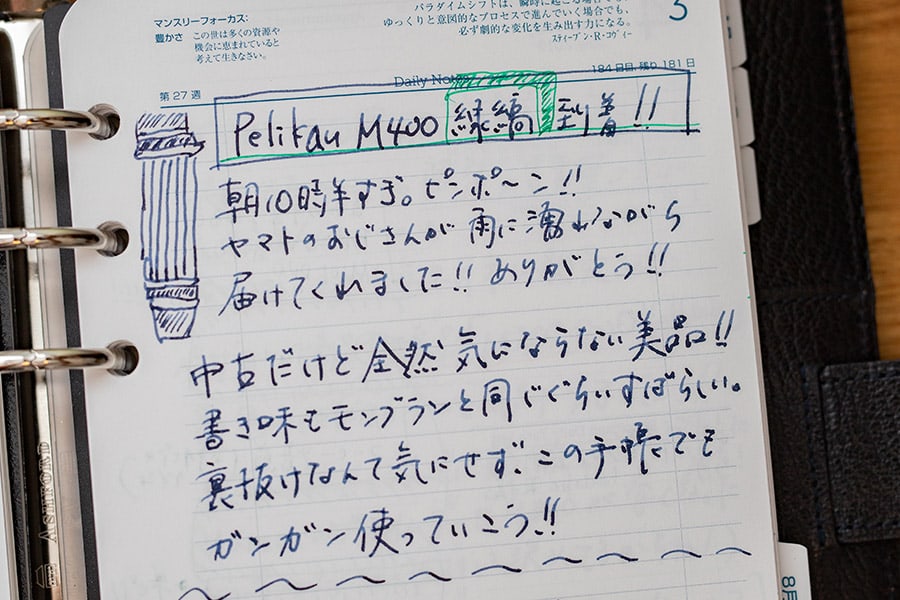 マンスリーフォーカス:
豊かさ この世は多くの資源や
機会に恵まれていると
考えて生きなさい。
パラダイムシフトは、瞬時に起こる場合でも、
ゆっくりと意図的なプロセスで進んでいく場合でも、
必ず劇的な変化を生み出す力になる。
スティーブン・R・コヴィー
3
第27週
Daily Notes
184日目、残り181日
Pelikan M400 緑縞 到着!!
朝10時半すぎ。ピンポ〜ン!!
ヤマトのおじさんが 雨に濡れながら
届けてくれました!! ありがとう!!
中古だけど全然気にならない美品!!
書き味もモンブランと同じぐらいすばらしい。
裏抜けなんて気にせず、この手帳でも
ガンガン使っていこう!!
ASHFORD
8月